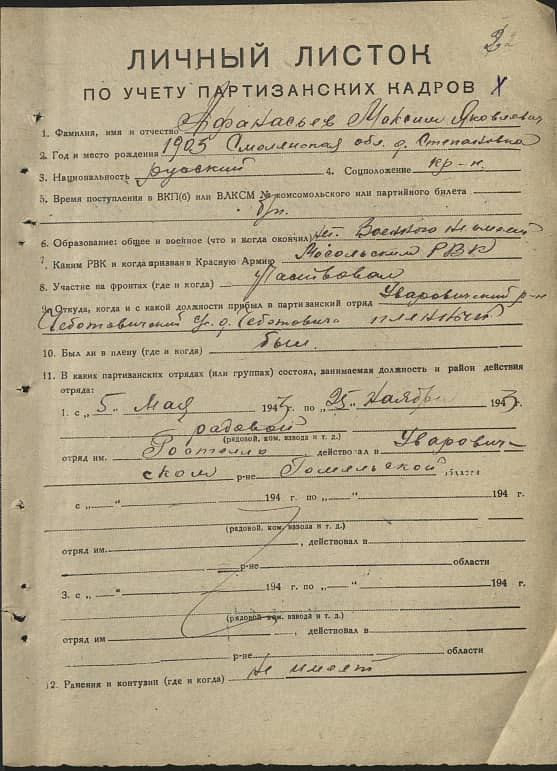 ЛИЧНЫЙ ЛИСТОК
ПО УЧЕТУ ПАРТИЗАНСКИХ КАДРОВ
1. Фамилия, имя и отчество Афанасьев Максим Яковлевич
2. Год и место рождения 1905 Смолянская обл. д. Степановка
3. Национальность русский 4. Соцположение кр-н.
5. Время поступления в ВКП(б) или ВЛКСМ № комсомольского или партийного билета
б/п.
6. Образование: общее и военное (что и когда окончил) Военного не имеет
7. Каким РВК и когда призван в Красную Армию Мосольским РВК
8. Участие на фронтах (где и когда)
9. Откуда, когда и с какой должности прибыл в партизанский отряд Уваровичский р-н
Чеботовичский с/с д. Чеботовичи
10. Был ли в плену (где и когда) был.
11. В каких партизанских отрядах (или группах) состоял, занимаемая должность и район действия
отряда:
1. с „5" Мая 1943 г. по „25" Ноября 1943 г.
рядовой
(рядовой, ком, взвода и т. д.)
отряд им. действовал в Уварович-
ском р-не Гомельской области
с „ " 194 г. по „ " 194 г.
(рядовой, ком, взвода и т. д.)
отряд им. , действовал в
р-не области
3. с „ " 194 г. по „ " 194 г.
(рядовой, ком, взвода и т. д.)
отряд им , действовал в
р-не области
12. Ранения и контузии (где и когда) Не имеет